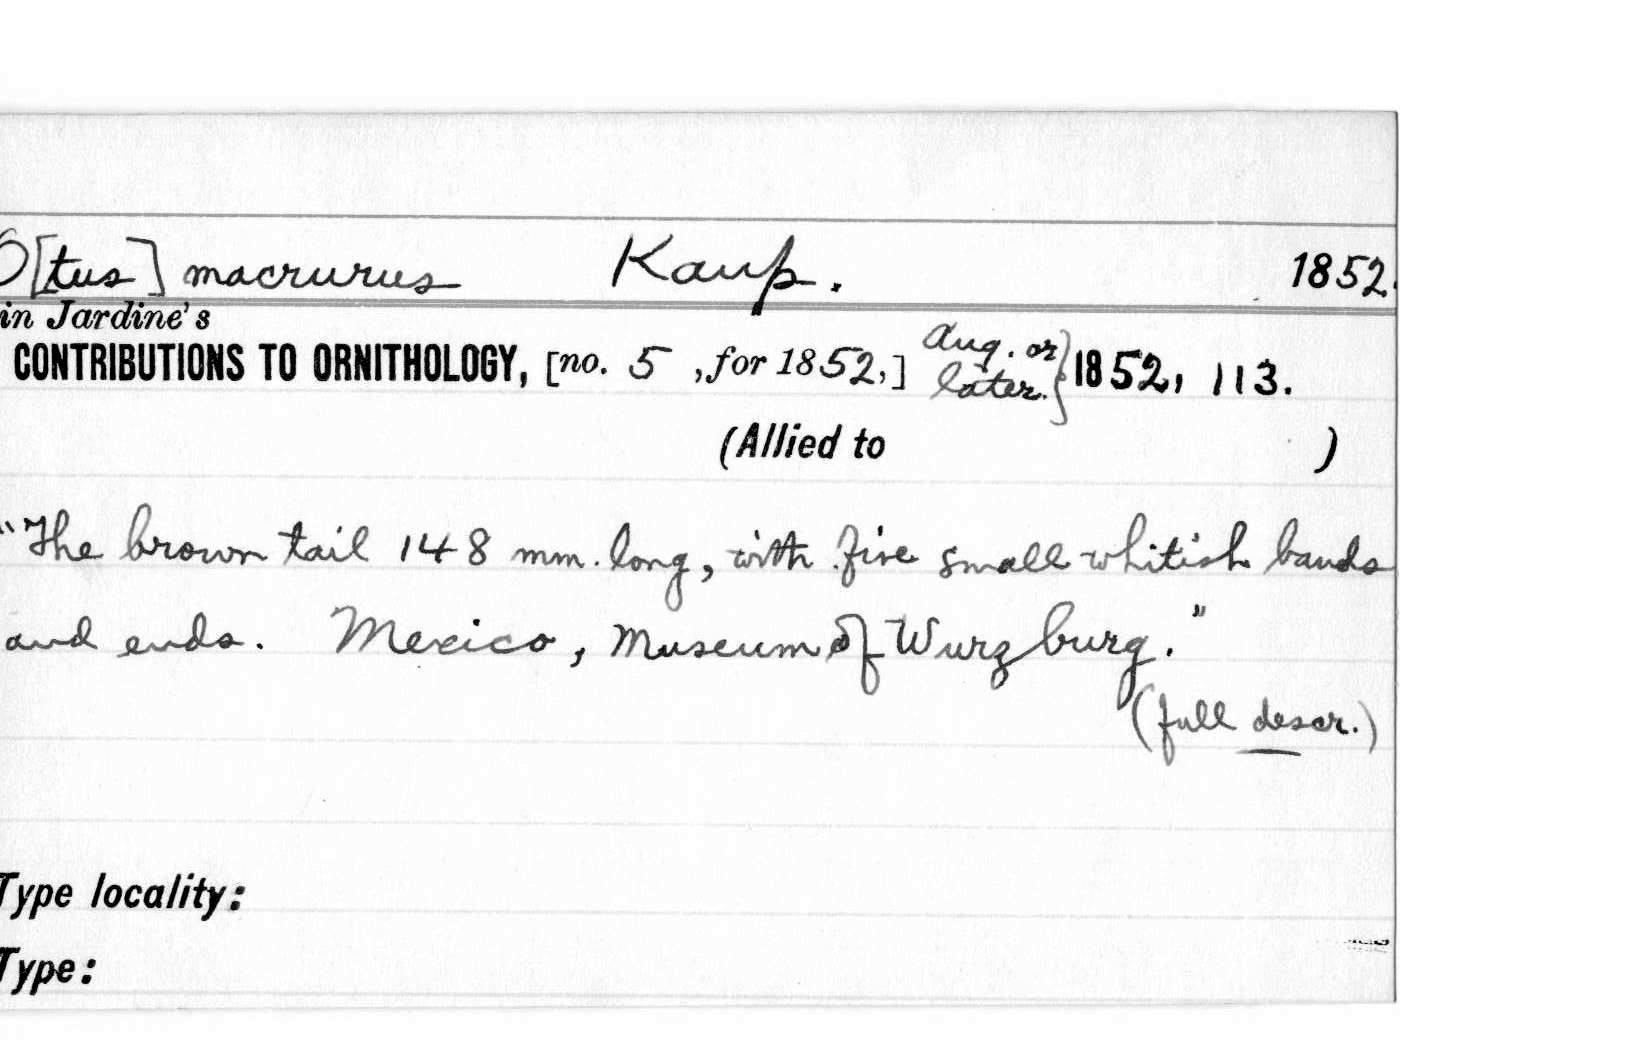 O[tus] macrurus Kaup. 1852.
in Jardine's
CONTRIBUTIONS TO ORNITHOLOGY, [no. 5 , for 1852,] Aug. or later.} 1852, 113.
(Allied to )
"The brown tail 148 mm. long, with five small whitish bands
and ends. Mexico, Museum of Wurzburg."
(full descr.)
Type locality:
Type: